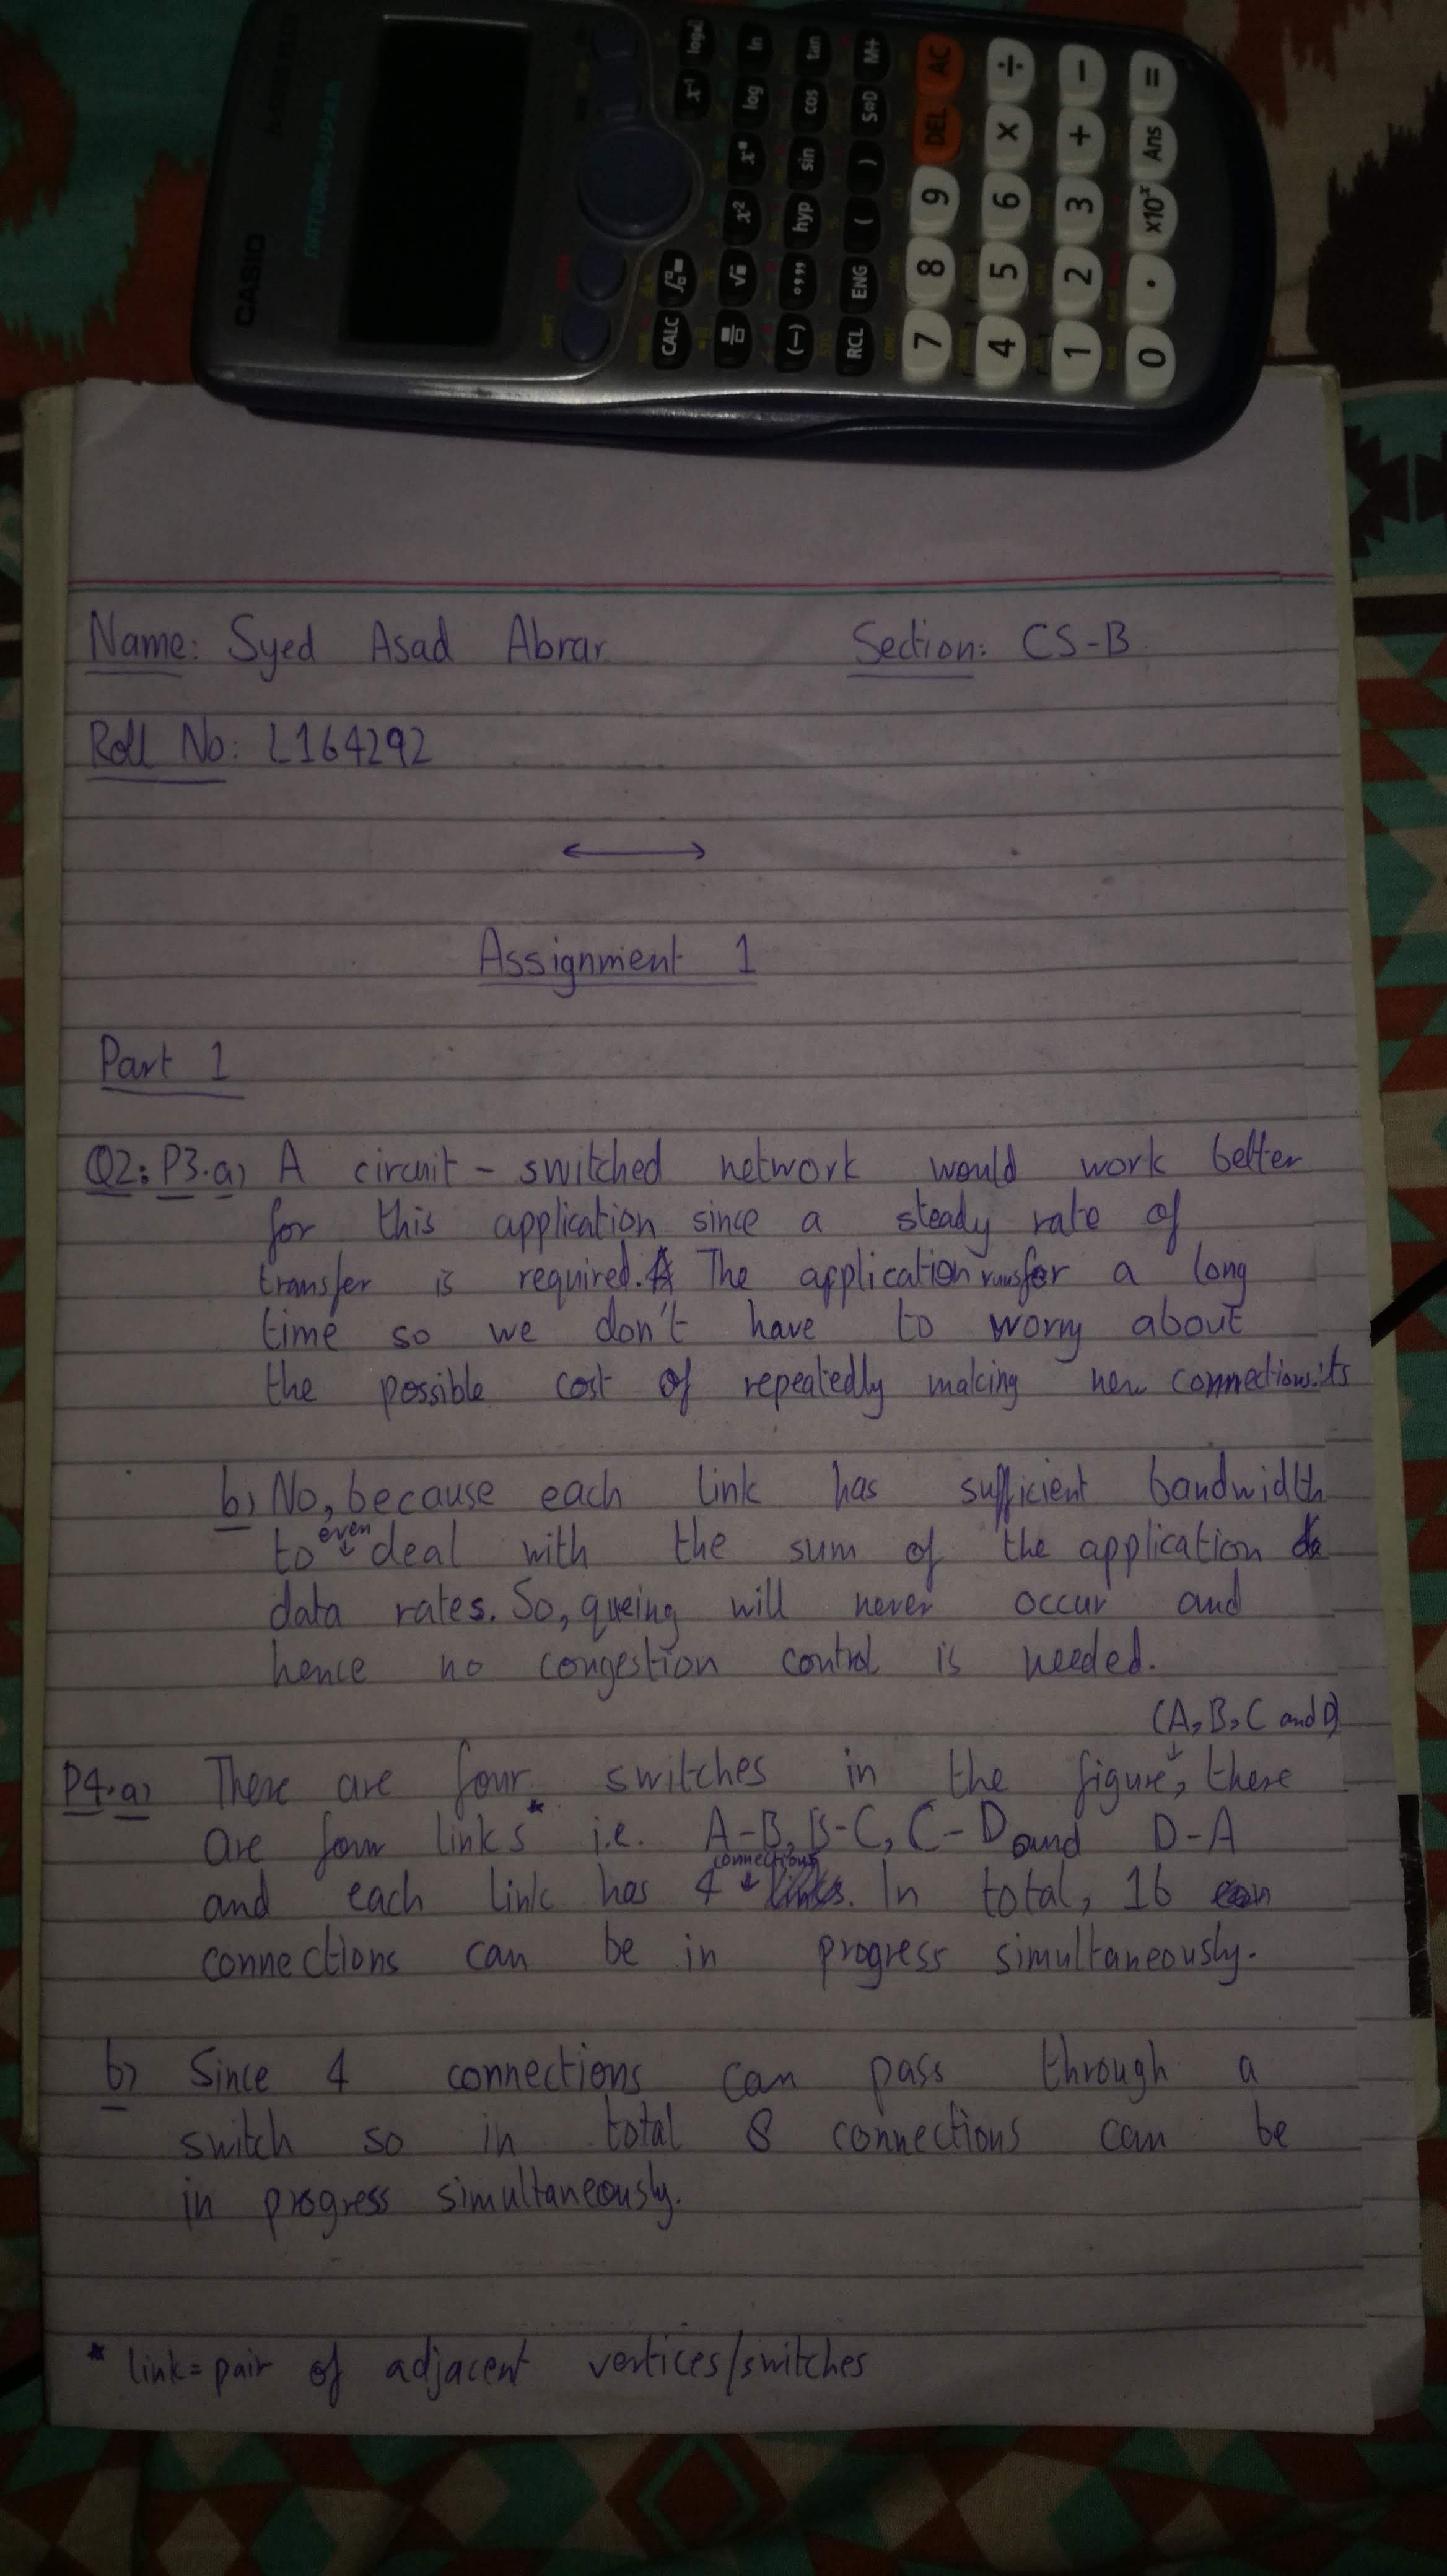 CASIO
NATURAL-V.P.A.M.
SHIFT
CALC
x⁻¹
√
x²
log
ln
(−)
hyp
sin
cos
tan
RCL
ENG
(
)
S⇔D
M+
7 8 9 DEL AC
4 5 6 × ÷
1 2 3 + −
0 . ×10ˣ Ans =
Name: Syed Asad Abrar Section: CS-B
Roll No: L164292
Assignment 1
Part 1
Q2: P3.a) A circuit - switched network would work better
for this application since a steady rate of
transfer is required. The application runs for a long
time so we don't have to worry about
the possible cost of repeatedly making new connections.
b) No, because each link has sufficient bandwidth
to even deal with the sum of the application
data rates. So, queing will never occur and
hence no congestion control is needed.
(A, B, C and D)
P4.a) There are four switches in the figure, there
are four links* i.e. A-B, B-C, C-D and D-A
and each link has 4 connections. In total, 16
connections can be in progress simultaneously.
b) Since 4 connections can pass through a
switch so in total 8 connections can be
in progress simultaneously.
* link = pair of adjacent vertices/switches